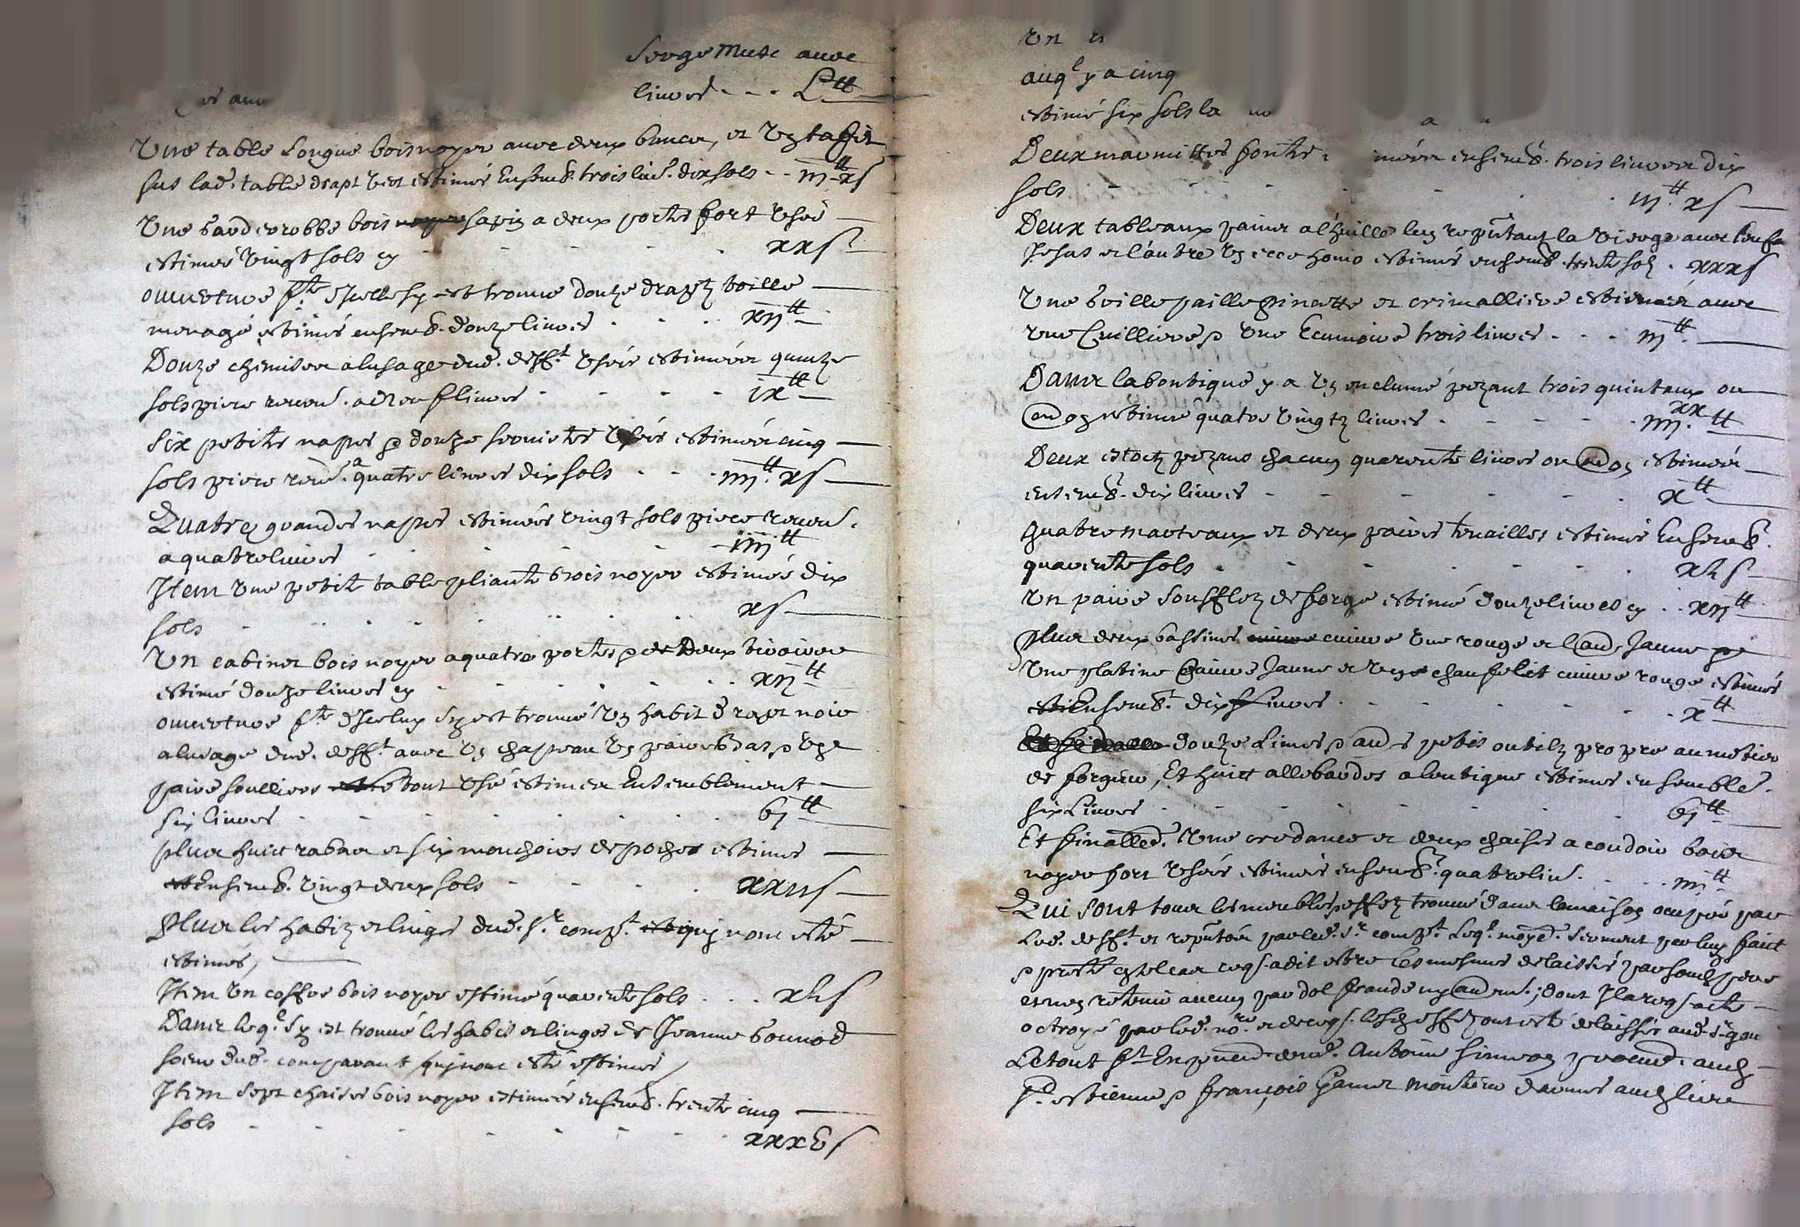 serge musc avec
livres - - - L tt
Une table longue bois noyer avec deux bancs, et ung tappis
sus lad. table drapt vert estimés ensemb. trois liv. dix sols - - iij tt xs
Une garderobbe bois noyer sapin a deux portes fort usée
estimée vingt sols cy xxs
ouverture f.te d'icelle sy est trouvé douze drapz toille
menage estimés ensemb. douze livres xij tt
Douze chemises a lusage dud. deff.t usées estimées quinze
sols piece reven. a neuf livres ix tt
Six petites nappes & douze serviettes usées estimées cinq
sols piece reven. a quatre livres dix sols iiij tt xs
Quatre grandes nappes estimées vingt sols piece reven.
a quatre livres iiij tt
Item une petite table pliante bois noyer estimée dix
sols xs
Un cabinet bois noyer a quatre portes & deux tiroires
estimé douze livres cy xij tt
ouverture f.te d'icelluy sy est trouvé ung habit drapt noir
a lusage dud. deff.t avec ung chappeau ung paire bas & une
paire soulliers tout usé estimes ensemblement
six livres vj tt
plus huict rabas et six mouchoirs de poche estimés
ensemb. vingt deux sols xxijs
plus les habitz et linges dud. s.r comp.t qui nont esté
estimés,
Item un coffre bois noyer estimé quarente sols xLs
Dans leq.l sy est trouvé les habis et linges de Jeanne
soeur dud. comparant qui nont esté estimés
Item sept chaises bois noyer estimées ensemb. trente cinq
sols xxxvs
Un
auq.l y a cinq
estimé six sols la
Deux marmittes fonte estimées ensemb. trois livres dix
sols iij tt xs
Deux tableaux paints a l'huille lun reputant la Vierge avec lenfan
Jesus et l'autre ung ecce homo estimés ensemb. trente solz xxxs
Une grille paille pincette et crimalliere estimées avec
une cuilliere & une ecumoire trois livres iij tt
Dans la boutique y a ung enclume pezant trois quintaux ou
environ estimé quatre vingtz livres iiij xx tt
Deux estocz pezant chacun quarente livres ou environ estimés
ensemb. dix livres x tt
quatre marteaux et deux paires tenailles estimés ensemb.
quarente sols xLs
Un paire soufflez de forge estimé douze livres cy xij tt
plus deux bassines cuivre une rouge et l'autre jaune &
une platine cuivre jaune et ung chaufelit cuivre rouge estimés
ensemb. dix livres x tt
douze limes & autres petis outilz propre au metier
de forgeur, Et huict allebardes a lantique estimés ensemble
six livres vj tt
Et finalled. une credance et deux chaises a coudoir bois
noyer fort usées estimées ensemb. quatre liv. iiij tt
Qui sont tous les meubles & effez trouvé dans la maison ocupée par
led. deff.t et reputés par led. s.r comp.t leq.l moyen. serment par luy faict
& presté
octroyé par led. no.re
Le tout f.t en presence de m.e Antoine
& françois